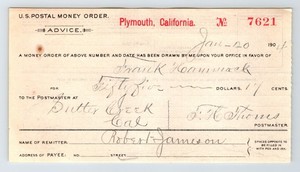 U.S. POSTAL MONEY ORDER.
Plymouth, California. No 7621
ADVICE.
Jan - 20 190
A MONEY ORDER OF ABOVE NUMBER AND DATE HAS BEEN DRAWN BY ME UPON YOUR OFFICE IN FAVOR OF
Frank Hammack
DOLLARS 17 CENTS.
TO THE POSTMASTER AT
Sutter Creek
Cal
POSTMASTER.
NAME OF REMITTER. Robert Jameson
ADDRESS OF PAYEE: NO. STREET.